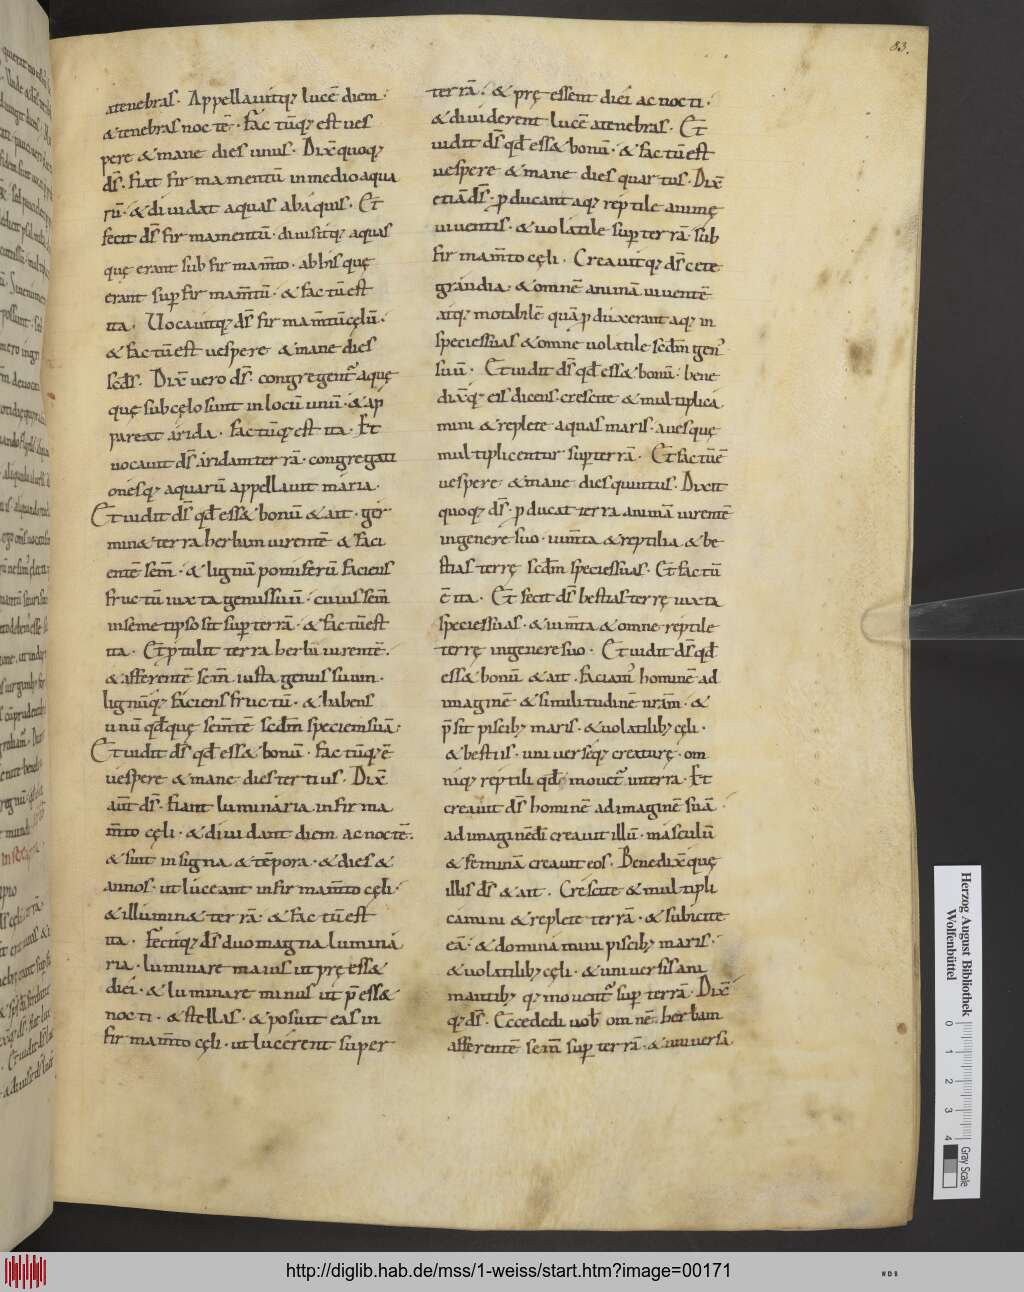 83.
atenebras. Appellauitq; lucē diem.
& tenebras noctē. Factūq; est ues
pere & mane dies unus. Dix̄ quoq;
d̄s. Fiat firmamentū inmedio aqua
rū. & diuidat aquas abaquis. Et
fecit d̄s firmamentū. diuisitq; aquas
quę erant sub firmam̄to. abhis quę
erant sup̄ firmam̄tū. & factūest
ita. Uocauitq; d̄s firmam̄tū cęlū.
& factūest uespere & mane dies
sc̄ds. Dix̄ uero d̄s. congregent᷑ aquę
quę subcęlo sunt inlocū unū. & ap
pareat arida. Factūq; est ita. Et
uocauit d̄s aridam terrā. congregati
onesq; aquarū appellauit maria.
Et uidit d̄s qd̄ ess& bonū & ait. ger
min& terra herbam uirentē & faci
entē sem̄. & lignū pomiferū faciens
fructū iuxta genus suū. cuius sem̄
insemetipso sit sup̄ terrā. & factūest
ita. Et p̄tulit terra herbā uirentē.
& afferentē sem̄ iusta genus suum.
lignūq; faciens fructū. & habens
unū qd̄quę sem̄tē scd̄m speciem suā.
Et uidit d̄s qd̄ ess& bonū. Factūq; ē
uespere & mane dies tertius. Dix̄
aūt d̄s. Fiant luminaria infirma
m̄to cęli. & diuidant diem ac noctē.
& sint insigna & tēpora. & dies &
annos. ut luceant infirmam̄to cęli.
& illumin& terrā. & factūest
ita. Fecitq; d̄s duo magna lumina
ria. luminare maius ut pręess&
diei. & luminare minus ut p̄ess&
nocti. & stellas. & posuit eas in
firmam̄to cęli. ut lucerent super
terrā. & pręessent diei ac nocti.
& diuiderent lucē atenebras. Et
uidit d̄s qd̄ ess& bonū. & factūest
uespere & mane dies quartus. Dix̄
etiā d̄s. p̄ducant aq; reptile animę
uiuentis. & uolatile sup̄ terrā. sub
firmam̄to cęli. Creauitq; d̄s cete
grandia. & omnē animā uiuentē
atq; motabilē quā p̄duxerant aq; in
species suas & omne uolatile scd̄m gen᷑
suū. Et uidit d̄s qd̄ ess& bonū. bene
dix̄q; eis dicens. crescite & multiplica
mini & replete aquas maris. auesquę
multiplicentur sup̄ terrā. Et factūē
uespere & mane dies quintus. Dixit
quoq; d̄s. p̄ducat terra animā uirentē
ingenere suo. ium̄ta & reptilia & be
stias terrę scd̄m species suas. Et factū
ē ita. Et fecit d̄s bestias terrę iuxta
species suas. & ium̄ta & omne reptile
terrę ingenere suo. Et uidit d̄s qd̄
ess& bonū & ait. Faciam᷑ hominē ad
imaginē & similitudinē nr̄am. &
p̄sit piscib; maris. & uolatilib; cęli.
& bestiis. uniuerseq; creaturę. om
niq; reptili qd̄ mouet᷑ interra. Et
creauit d̄s hominē ad imaginē suā.
ad imaginē dī creauit illū. masculū
& feminā creauit eos. Benedix̄quę
illis d̄s & ait. Crescite & multipli
camini & replete terrā. & subicite
eā. & dominamini piscib; maris.
& uolatilib; cęli. & uniuersis ani
mantib; q; mouent᷑ sup̄ terrā. Dix̄
q; d̄s. Ecce dedi uob̄ omnē herbam
afferentē sem̄ sup̄ terrā. & uniuersa
Herzog August Bibliothek
Wolfenbüttel
0 1 2 3 4
Gray Scale
http://diglib.hab.de/mss/1-weiss/start.htm?image=00171